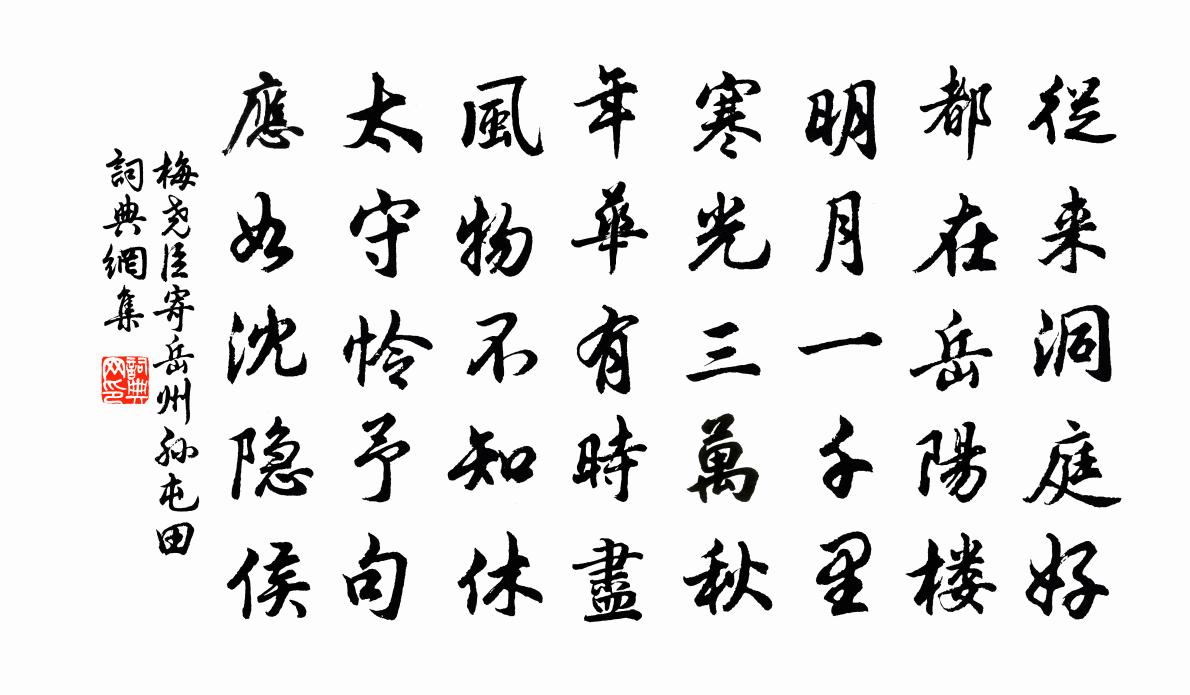 從来洞庭好
都在岳陽楼
明月一千里
寒光三萬秋
年華有時盡
風物不知休
太守怜予句
應如沈隐侯
梅尧臣寄岳州孙屯田
詞典網集
詞典网印